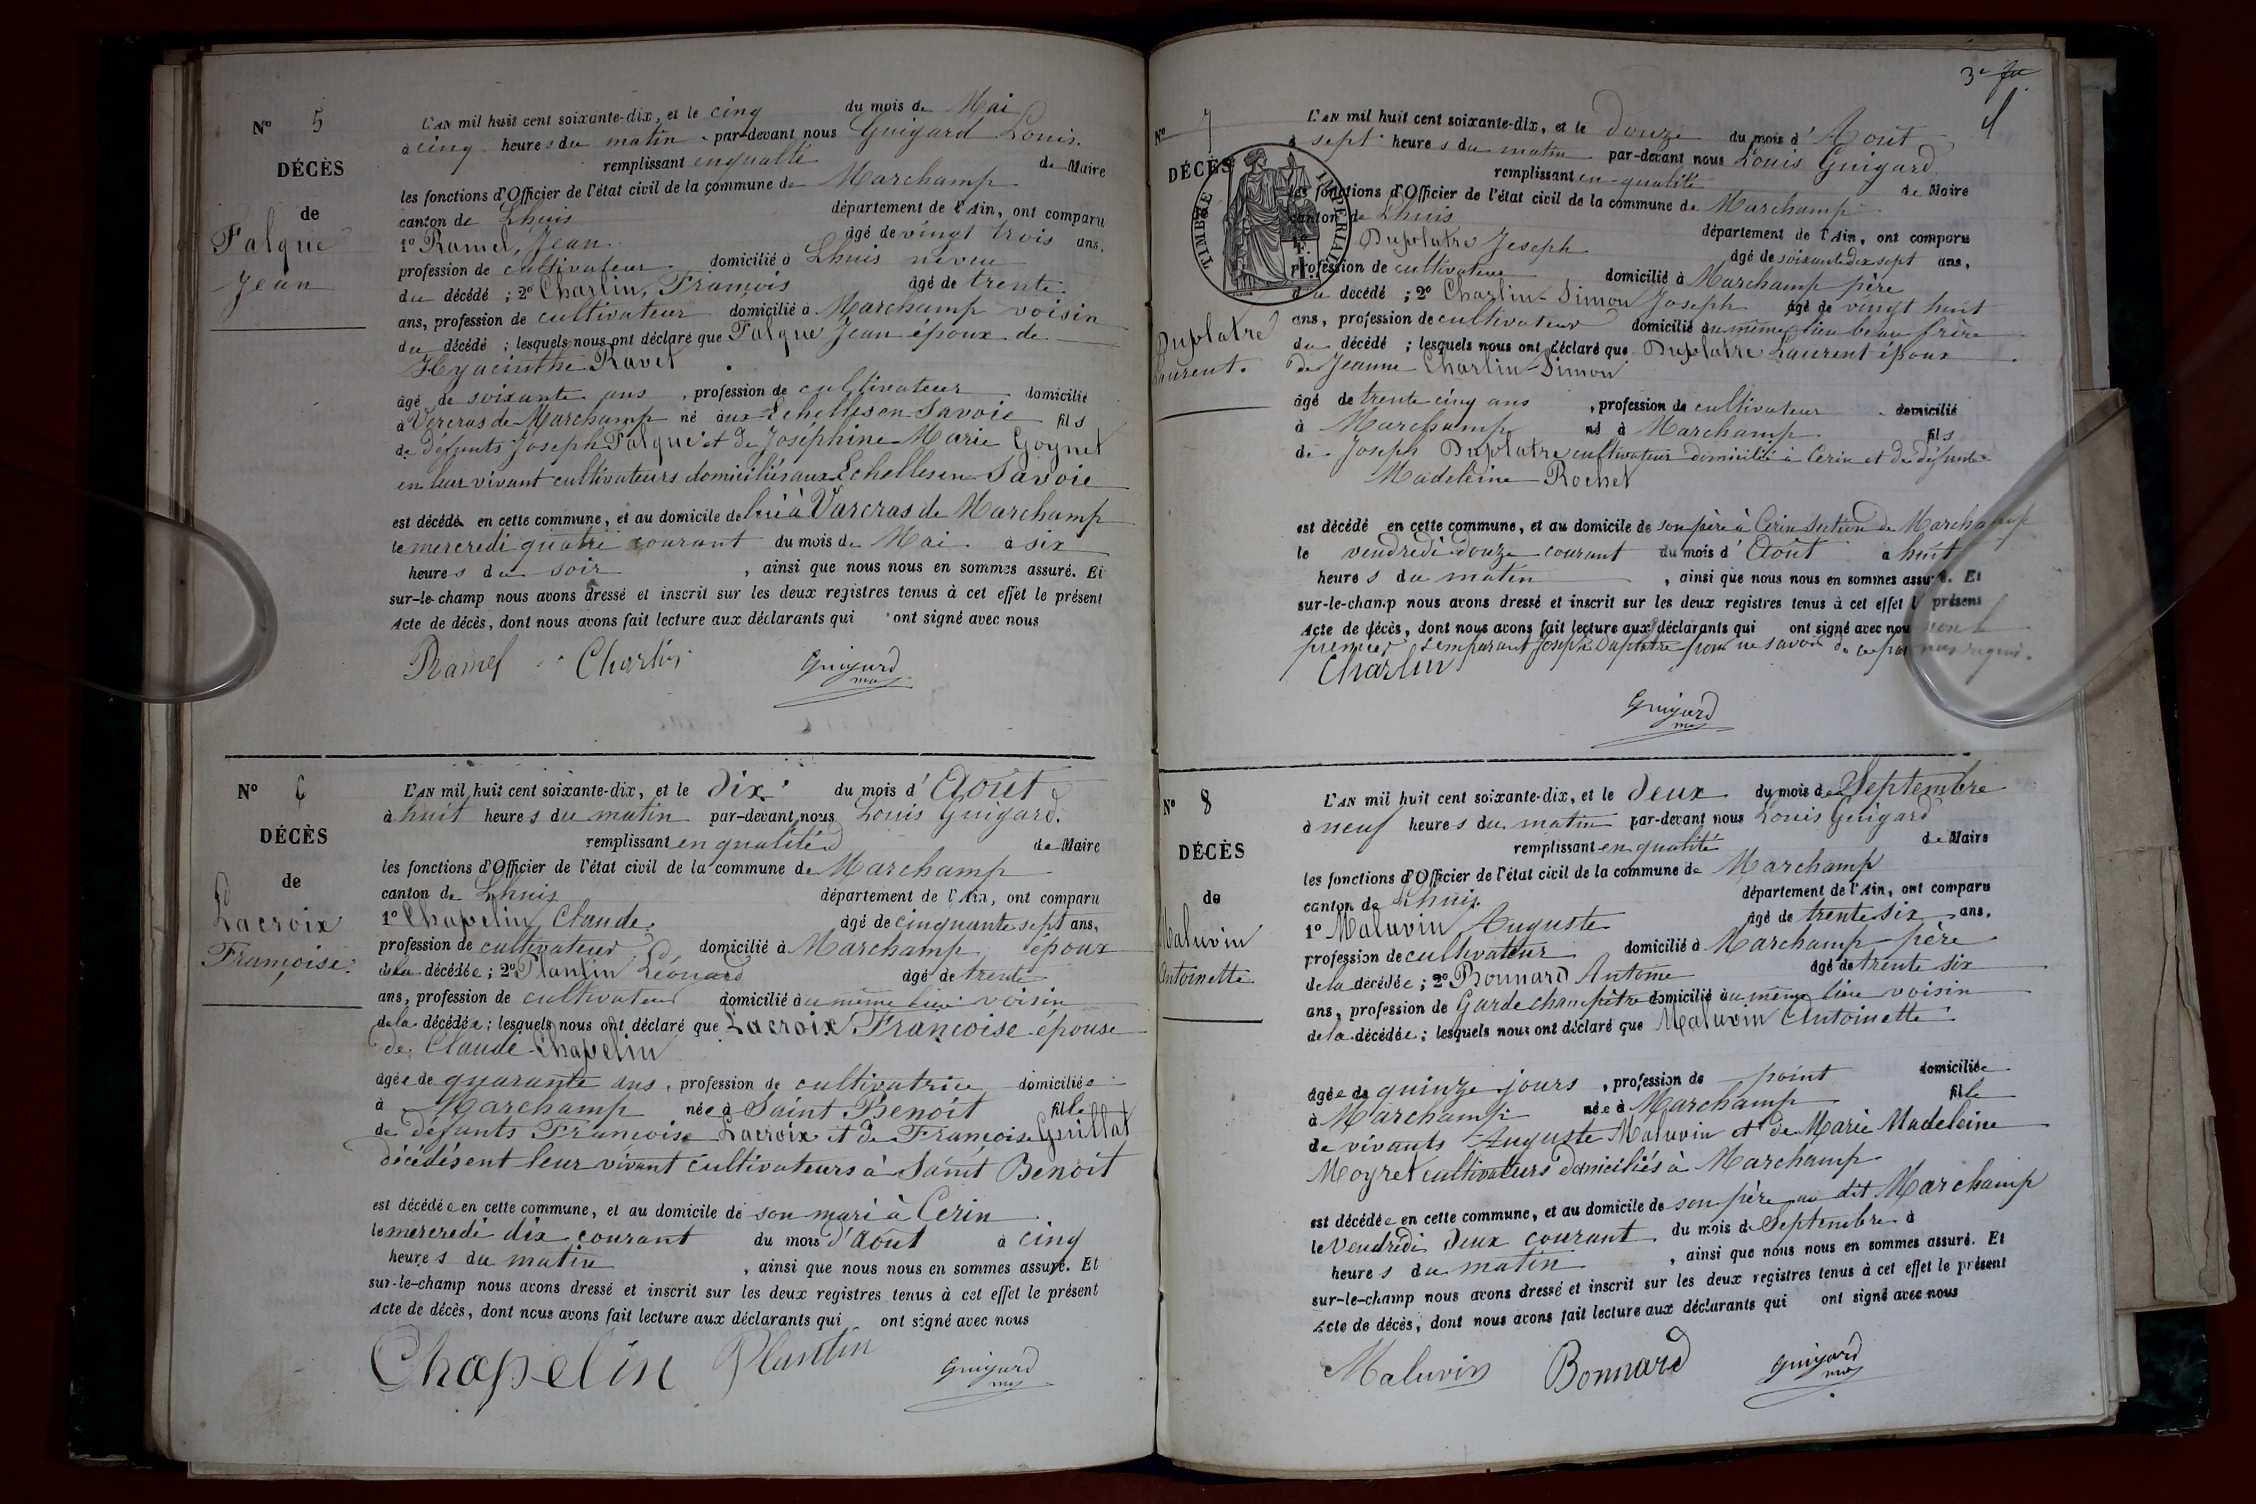 N° 5
DÉCÈS
de
Falque
Jean
L'AN mil huit cent soixante-dix, et le cinq du mois de Mai
à cinq heures du matin par-devant nous Guigard Louis.
remplissant en qualité de Maire
les fonctions d'Officier de l'état civil de la commune de Marchamp
canton de Lhuis département de l'Ain, ont comparu
1° Ramel, Jean âgé de vingt trois ans,
profession de cultivateur domicilié à Lhuis neveu
du décédé ; 2° Charlin, François âgé de trente
ans, profession de cultivateur domicilié à Marchamp voisin
du décédé ; lesquels nous ont déclaré que Falque Jean époux de
Hyacinthe Ravet
âgé de soixante ans, profession de cultivateur domicilié
à Vercras de Marchamp né aux Echelles en Savoie fils
de défunts Joseph Falque et de Joséphine Marie Goynet
en leur vivant cultivateurs domiciliés aux Echelles en Savoie
est décédé en cette commune, et au domicile de lui à Varcras de Marchamp
le mercredi quatre courant du mois de Mai à six
heures du soir, ainsi que nous nous en sommes assuré. Et
sur-le-champ nous avons dressé et inscrit sur les deux registres tenus à cet effet le présent
Acte de décès, dont nous avons fait lecture aux déclarants qui ont signé avec nous
Ramel Charlin Guigard
N° 6
DÉCÈS
de
Lacroix
Françoise.
L'AN mil huit cent soixante-dix, et le dix du mois d'Août
à huit heures du matin par-devant nous Louis Guigard.
remplissant en qualité de Maire
les fonctions d'Officier de l'état civil de la commune de Marchamp
canton de Lhuis département de l'Ain, ont comparu
1° Chapelin Claude. âgé de cinquante sept ans,
profession de cultivateur domicilié à Marchamp époux
de la décédée ; 2° Plantin Léonard âgé de trente
ans, profession de cultivateur domicilié au même lieu voisin
de la décédée ; lesquels nous ont déclaré que Lacroix Françoise épouse
de Claude Chapelin
âgée de quarante ans, profession de cultivatrice domiciliée
à Marchamp née à Saint Benoit fille
de défunts François Lacroix et de Françoise Guillat
décédés en leur vivant cultivateurs à Saint Benoit
est décédée en cette commune, et au domicile de son mari à Cerin
le mercredi dix courant du mois d'Août à cinq
heures du matin, ainsi que nous nous en sommes assuré. Et
sur-le-champ nous avons dressé et inscrit sur les deux registres tenus à cet effet le présent
Acte de décès, dont nous avons fait lecture aux déclarants qui ont signé avec nous
Chapelin Plantin Guigard
3e
N° 7
DÉCÈS
TIMBRE IMPERIAL
Duplatre
Laurent.
L'AN mil huit cent soixante-dix, et le douze du mois d'Août
à sept heures du matin par-devant nous Louis Guigard
remplissant en qualité de Maire
les fonctions d'Officier de l'état civil de la commune de Marchamp
canton de Lhuis département de l'Ain, ont comparu
Duplatre Joseph âgé de soixante dix sept ans,
profession de cultivateur domicilié à Marchamp père
du décédé ; 2° Charlin-Simon Joseph âgé de vingt huit
ans, profession de cultivateur domicilié au même lieu beau frère
du décédé ; lesquels nous ont déclaré que Duplatre Laurent époux
de Jeanne Charlin-Simon
âgé de trente cinq ans, profession de cultivateur domicilié
à Marchamp né à Marchamp fils
de Joseph Duplatre cultivateur domicilié à Cerin et de défunte
Madeleine Rochet
est décédé en cette commune, et au domicile de son père à Cerin section de Marchamp
le vendredi douze courant du mois d'Août à huit
heures du matin, ainsi que nous nous en sommes assuré. Et
sur-le-champ nous avons dressé et inscrit sur les deux registres tenus à cet effet le présent
Acte de décès, dont nous avons fait lecture aux déclarants qui ont signé avec nous non le
premier comparant Joseph Duplatre pour ne savoir de ce par nous requis.
Charlin
Guigard
N° 8
DÉCÈS
de
Maluvin
Antoinette
L'AN mil huit cent soixante-dix, et le deux du mois de Septembre
à neuf heures du matin par-devant nous Louis Guigard
remplissant en qualité de Maire
les fonctions d'Officier de l'état civil de la commune de Marchamp
canton de Lhuis département de l'Ain, ont comparu
1° Maluvin Auguste âgé de trente six ans,
profession de cultivateur domicilié à Marchamp père
de la décédée ; 2° Bonnard Antoine âgé de trente six
ans, profession de Garde champêtre domicilié au même lieu voisin
de la décédée ; lesquels nous ont déclaré que Maluvin Antoinette
âgée de quinze jours, profession de point domiciliée
à Marchamp née à Marchamp fille
de vivants Auguste Maluvin et de Marie Madeleine
Moyret cultivateurs domiciliés à Marchamp
est décédée en cette commune, et au domicile de son père au dit Marchamp
le Vendredi deux courant du mois de Septembre à
heures du matin, ainsi que nous nous en sommes assuré. Et
sur-le-champ nous avons dressé et inscrit sur les deux registres tenus à cet effet le présent
Acte de décès, dont nous avons fait lecture aux déclarants qui ont signé avec nous
Maluvin Bonnard Guigard